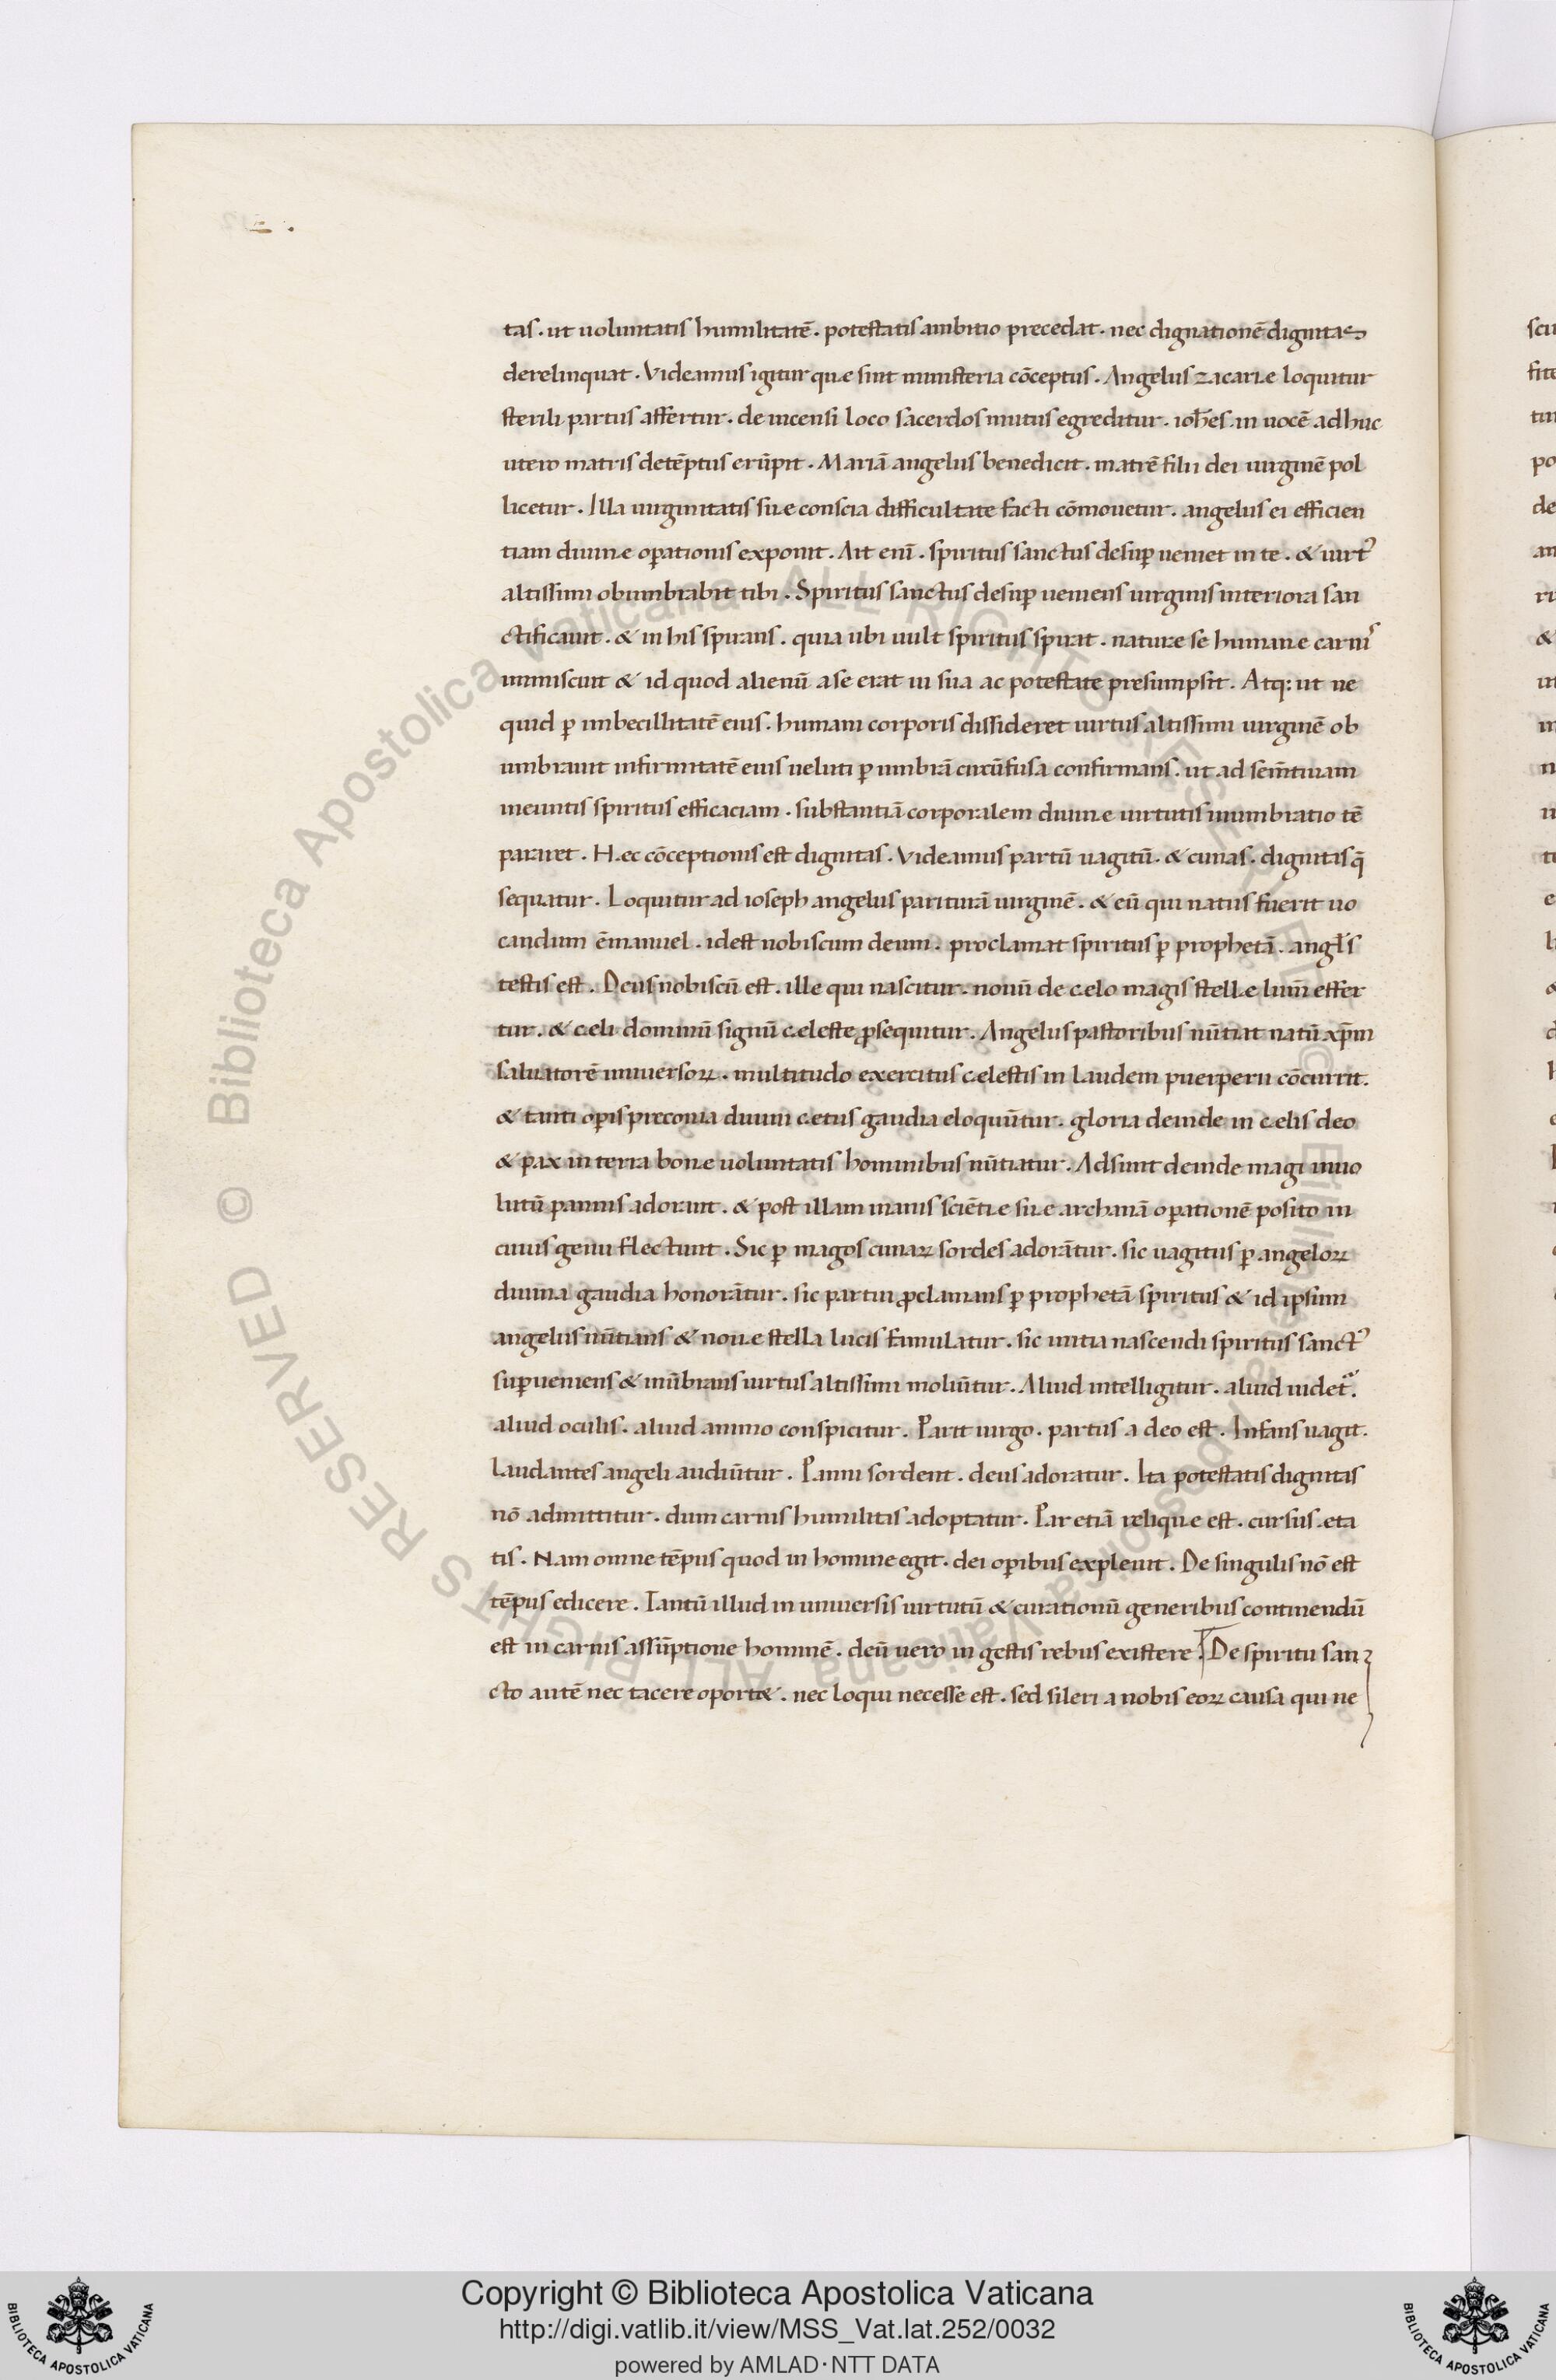 tas. ut uoluntatis humilitatē. potestatis ambitio precedat. nec dignationē dignitas
derelinquat. Videamus igitur quę sint ministeria cōceptus. Angelus zacarię loquitur
sterili partus affertur. de incensi loco sacerdos mutus egreditur. ioħes in uocē adhuc
utero matris detēptus erūpit. Mariā angelus benedicit. matrē filii dei uirginē pol
licetur. Illa uirginitatis suę conscia difficultate facti cōmouetur. angelus ei efficien
tiam diuinę oꝑationis exponit. Ait enī. spiritus sanctus desuꝑ ueniet in te. & uirtꝰ
altissimi obumbrabit tibi. Spiritus sanctus desuꝑ ueniens uirginis interiora san
ctificauit. & in his spirans. quia ubi uult spiritus spirat. naturę se humanę carnis
inmiscuit & id quod alienū a se erat in sua ac potestate presumpsit. Atq: ut ne
quid ꝑ imbecillitatē eius. humani corporis dissideret uirtus altissimi uirginē ob
umbrauit infirmitatē eius ueluti ꝑ umbrā circūfusa confirmans. ut ad sem̄tiuam
ineuntis spiritus efficaciam. substantiā corporalem diuinę uirtutis inumbratio tē
pararet. Hęc cōceptionis est dignitas. Videamus partū uagitū. & cunas. dignitas q̄
sequatur. Loquitur ad ioseph angelus pariturā uirginē. & eū qui natus fuerit uo
candum ēmanuel. idest nobiscum deum. proclamat spiritus ꝑ prophetā. angl̄s
testis est. Deus nobiscū est. ille qui nascitur. nouū de cęlo magis stellę lum̄ effer
tur. & cęli dominū signū cęleste ꝓsequitur. Angelus pastoribus nūtiat natū xp̄m
saluatorē uniuersoꝝ. multitudo exercitus cęlestis in laudem puerperii cōcurrit.
& tanti oꝑis preconia diuini cętus gaudia eloquūtur. gloria deinde in cęlis deo
& pax in terra bonę uoluntatis hominibus nūtiatur. Adsunt deinde magi inuo
lutū pannis adorant. & post illam inanis sciētię suę archanā oꝑationē posito in
cunis genu flectunt. Sic ꝑ magos cunaꝝ sordes adorātur. sic uagitus ꝑ angeloꝝ
diuina gaudia honorātur. sic partui ꝓclamans ꝑ prophetā spiritus & id ipsum
angelus nūtians & nouę stella lucis famulatur. sic initia nascendi spiritus sanctꝰ
suꝑueniens & inūbrans uirtus altissimi moliūtur. Aliud intelligitur. aliud uidet̃.
aliud oculis. aliud animo conspicitur. Parit uirgo. partus a deo est. Infans uagit.
laudantes angeli audiūtur. Panni sordent. deus adoratur. Ita potestatis dignitas
nō admittitur. dum carnis humilitas adoptatur. Par etiā reliquę est. cursus ęta
tis. Nam omne tēpus quod in homine egit. dei oꝑibus expleuit. De singulis nō est
tēpus edicere. Tantū illud in uniuersis uirtutū & curationū generibus continendū
est in carnis assūptione hominē. deū uero in gestis rebus existere. De spiritu san
cto autē nec tacere oport&. nec loqui necesse est. sed sileri a nobis eoꝝ causa qui ne
Copyright © Biblioteca Apostolica Vaticana
http://digi.vatlib.it/view/MSS_Vat.lat.252/0032
powered by AMLAD·NTT DATA